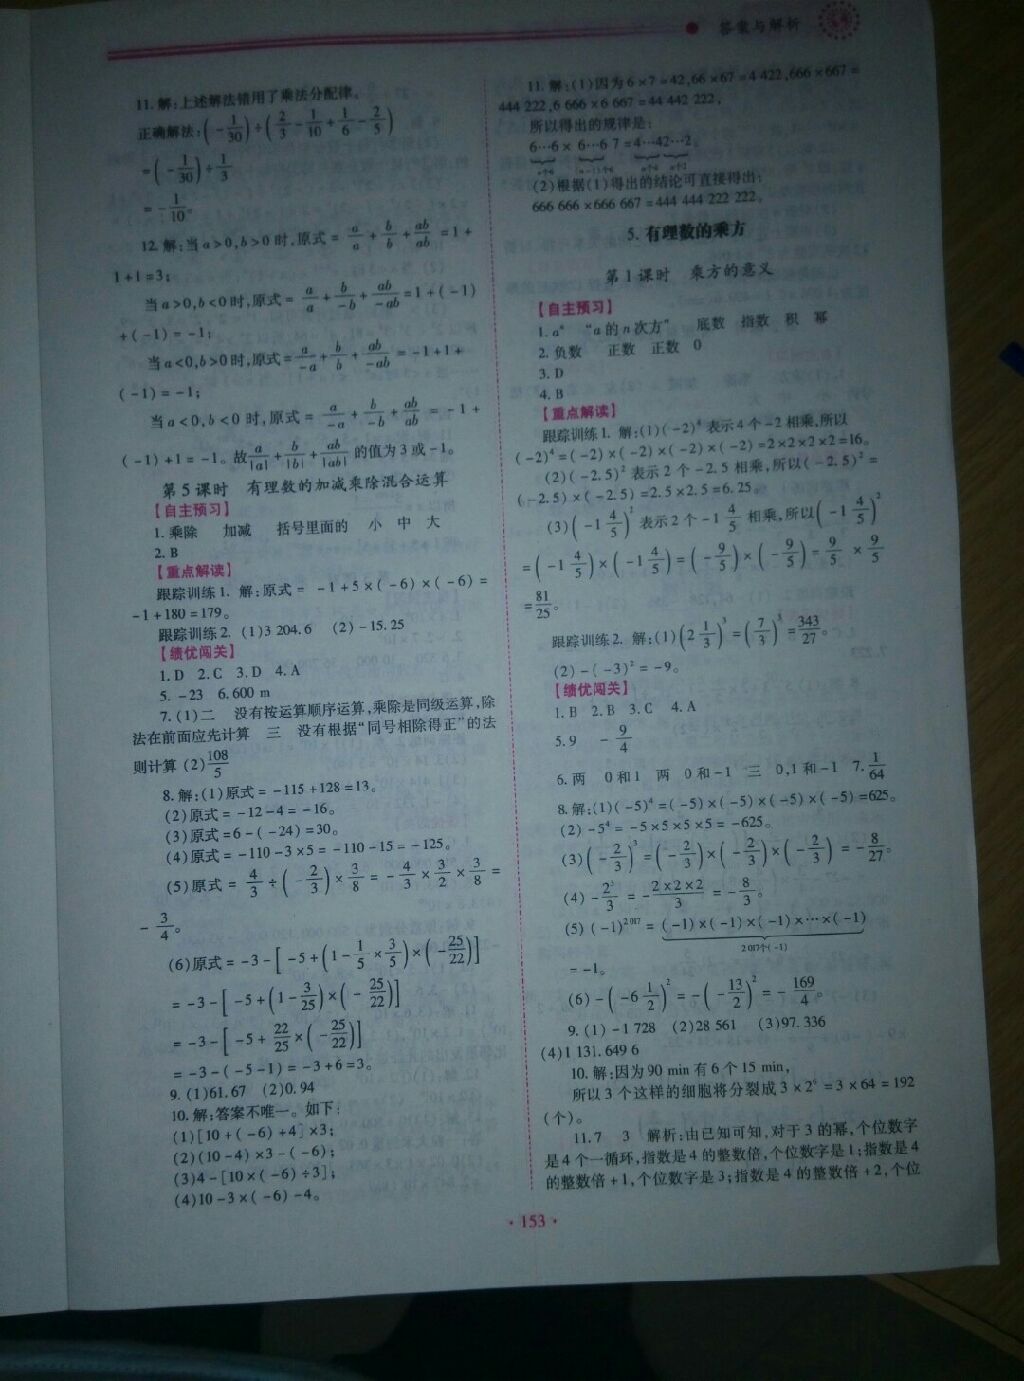 答案与解析
11.解:上述解法错用了乘法分配律。
正确解法:(-1/30)÷(2/3-1/10+1/6-2/5)
=(-1/30)÷1/3
=-1/10。
12.解:当a>0,b>0时,原式=a/a+b/b+ab/ab=1+
1+1=3;
当a>0,b<0时,原式=a/a+b/-b+ab/-ab=1+(-1)
+(-1)=-1;
当a<0,b>0时,原式=a/-a+b/b+ab/-ab=-1+1+
(-1)=-1;
当a<0,b<0时,原式=a/-a+b/-b+ab/ab=-1+
(-1)+1=-1。故a/|a|+b/|b|+ab/|ab|的值为3或-1。
第5课时 有理数的加减乘除混合运算
【自主预习】
1.乘除 加减 括号里面的 小 中 大
2.B
【重点解读】
跟踪训练1. 解:原式=-1+5×(-6)×(-6)=
-1+180=179。
跟踪训练2. (1)3 204.6 (2)-15.25
【绩优闯关】
1.D 2.C 3.D 4.A
5.-23 6.600 m
7.(1)二 没有按运算顺序运算,乘除是同级运算,除
法在前面应先计算 三 没有根据“同号相除得正”的法
则计算 (2)108/5
8.解:(1)原式=-115+128=13。
(2)原式=-12-4=-16。
(3)原式=6-(-24)=30。
(4)原式=-110-3×5=-110-15=-125。
(5)原式=4/3÷(-2/3)×3/8=-4/3×3/2×3/8=
-3/4。
(6)原式=-3-[-5+(1-1/5×3/5)×(-25/22)]
=-3-[-5+(1-3/25)×(-25/22)]
=-3-[-5+22/25×(-25/22)]
=-3-(-5-1)=-3+6=3。
9.(1)61.67 (2)0.94
10.解:答案不唯一。如下:
(1)[10+(-6)+4]×3;
(2)(10-4)×3-(-6);
(3)4-[10×(-6)÷3];
(4)10-3×(-6)-4。
11.解:(1)因为6×7=42,66×67=4 422,666×667=
444 222,6 666×6 667=44 442 222,
所以得出的规律是:
6…6×6…6 7=4…42…2。
(2)根据(1)得出的结论可直接得出:
666 666×666 667=444 444 222 222。
5.有理数的乘方
第1课时 乘方的意义
【自主预习】
1.aⁿ “a的n次方” 底数 指数 积 幂
2.负数 正数 正数 0
3.D
4.B
【重点解读】
跟踪训练1. 解:(1)(-2)⁴表示4个-2相乘,所以
(-2)⁴=(-2)×(-2)×(-2)×(-2)=2×2×2×2=16。
(2)(-2.5)²表示2个-2.5相乘,所以(-2.5)²=
(-2.5)×(-2.5)=2.5×2.5=6.25。
(3)(-1 4/5)²表示2个-1 4/5相乘,所以(-1 4/5)²
=(-1 4/5)×(-1 4/5)=(-9/5)×(-9/5)=9/5×9/5
=81/25。
跟踪训练2. 解:(1)(2 1/3)³=(7/3)³=343/27。
(2)-(-3)²=-9。
【绩优闯关】
1.B 2.B 3.C 4.A
5.9 -9/4
6.两 0和1 两 0和-1 三 0,1和-1 7.1/64
8.解:(1)(-5)⁴=(-5)×(-5)×(-5)×(-5)=625。
(2)-5⁴=-5×5×5×5=-625。
(3)(-2/3)³=(-2/3)×(-2/3)×(-2/3)=-8/27。
(4)-2³/3=-2×2×2/3=-8/3。
(5)(-1)²⁰¹⁷=(-1)×(-1)×(-1)×…×(-1)
2 017个(-1)
=-1。
(6)-(-6 1/2)²=-(-13/2)²=-169/4。
9.(1)-1 728 (2)28 561 (3)97.336
(4)1 131.649 6
10.解:因为90 min有6个15 min,
所以3个这样的细胞将分裂成3×2⁶=3×64=192
(个)。
11.7 3 解析:由已知可知,对于3的幂,个位数字
是4个一循环,指数是4的整数倍,个位数字是1;指数是4
的整数倍+1,个位数字是3;指数是4的整数倍+2,个位
·153·